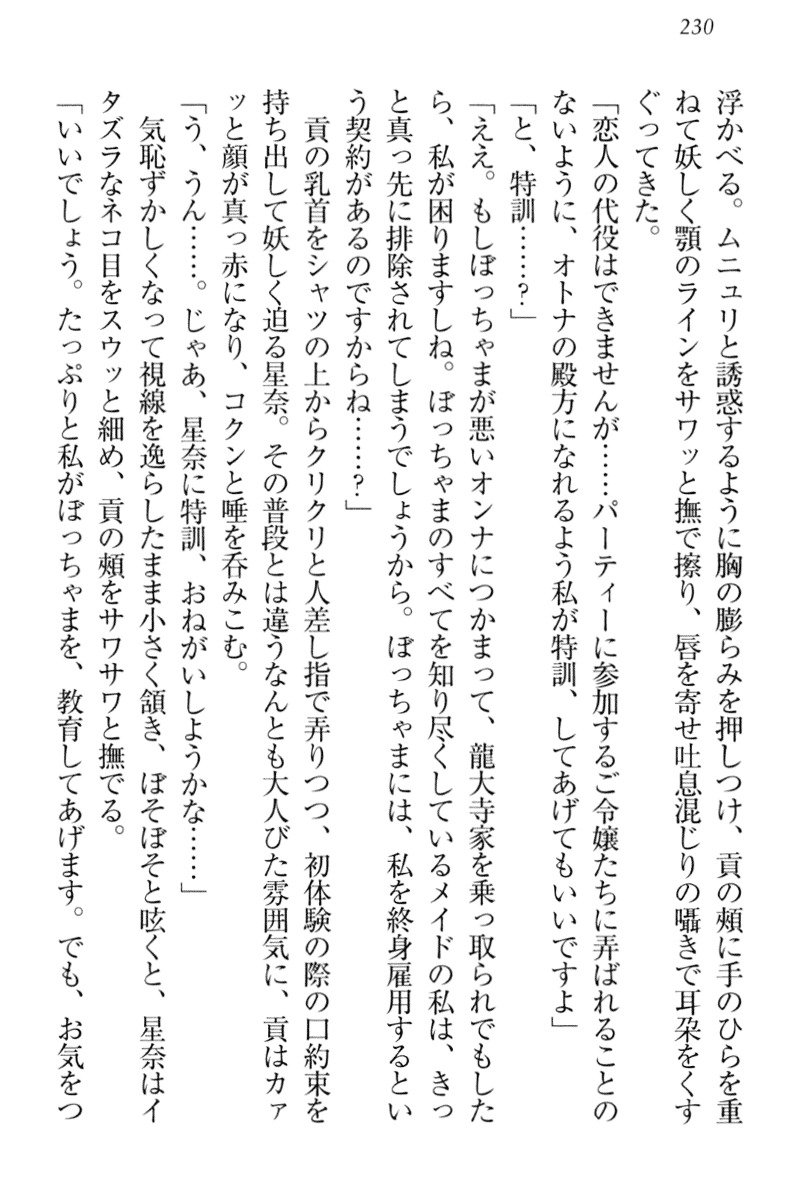 230
浮かべる。ムニュリと誘惑するように胸の膨らみを押しつけ、貢の頬に手のひらを重
ねて妖しく顎のラインをサワッと撫で擦り、唇を寄せ吐息混じりの囁きで耳朶をくす
ぐってきた。
「恋人の代役はできませんが……パーティーに参加するご令嬢たちに弄ばれることの
ないように、オトナの殿方になれるよう私が特訓、してあげてもいいですよ」
「と、特訓……?」
「ええ。もしぼっちゃまが悪いオンナにつかまって、龍大寺家を乗っ取られでもした
ら、私が困りますしね。ぼっちゃまのすべてを知り尽くしているメイドの私は、きっ
と真っ先に排除されてしまうでしょうから。ぼっちゃまには、私を終身雇用するとい
う契約があるのですからね……?」
貢の乳首をシャツの上からクリクリと人差し指で弄りつつ、初体験の際の口約束を
持ち出して妖しく迫る星奈。その普段とは違うなんとも大人びた雰囲気に、貢はカァ
ッと顔が真っ赤になり、コクンと唾を呑みこむ。
「う、うん……。じゃあ、星奈に特訓、おねがいしようかな……」
気恥ずかしくなって視線を逸らしたまま小さく頷き、ぼそぼそと呟くと、星奈はイ
タズラなネコ目をスウッと細め、貢の頬をサワサワと撫でる。
「いいでしょう。たっぷりと私がぼっちゃまを、教育してあげます。でも、お気をつ